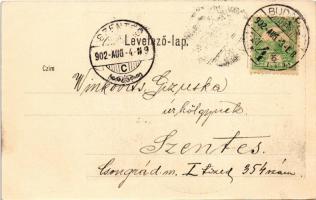 Levelező-lap.
SZENTES
902 AUG. 4
C
BUDA
902 AUG.
Czim
Winkovics Gizuska
úrhölgynek
Szentes.
Csongrád m. I tized 354 szám.